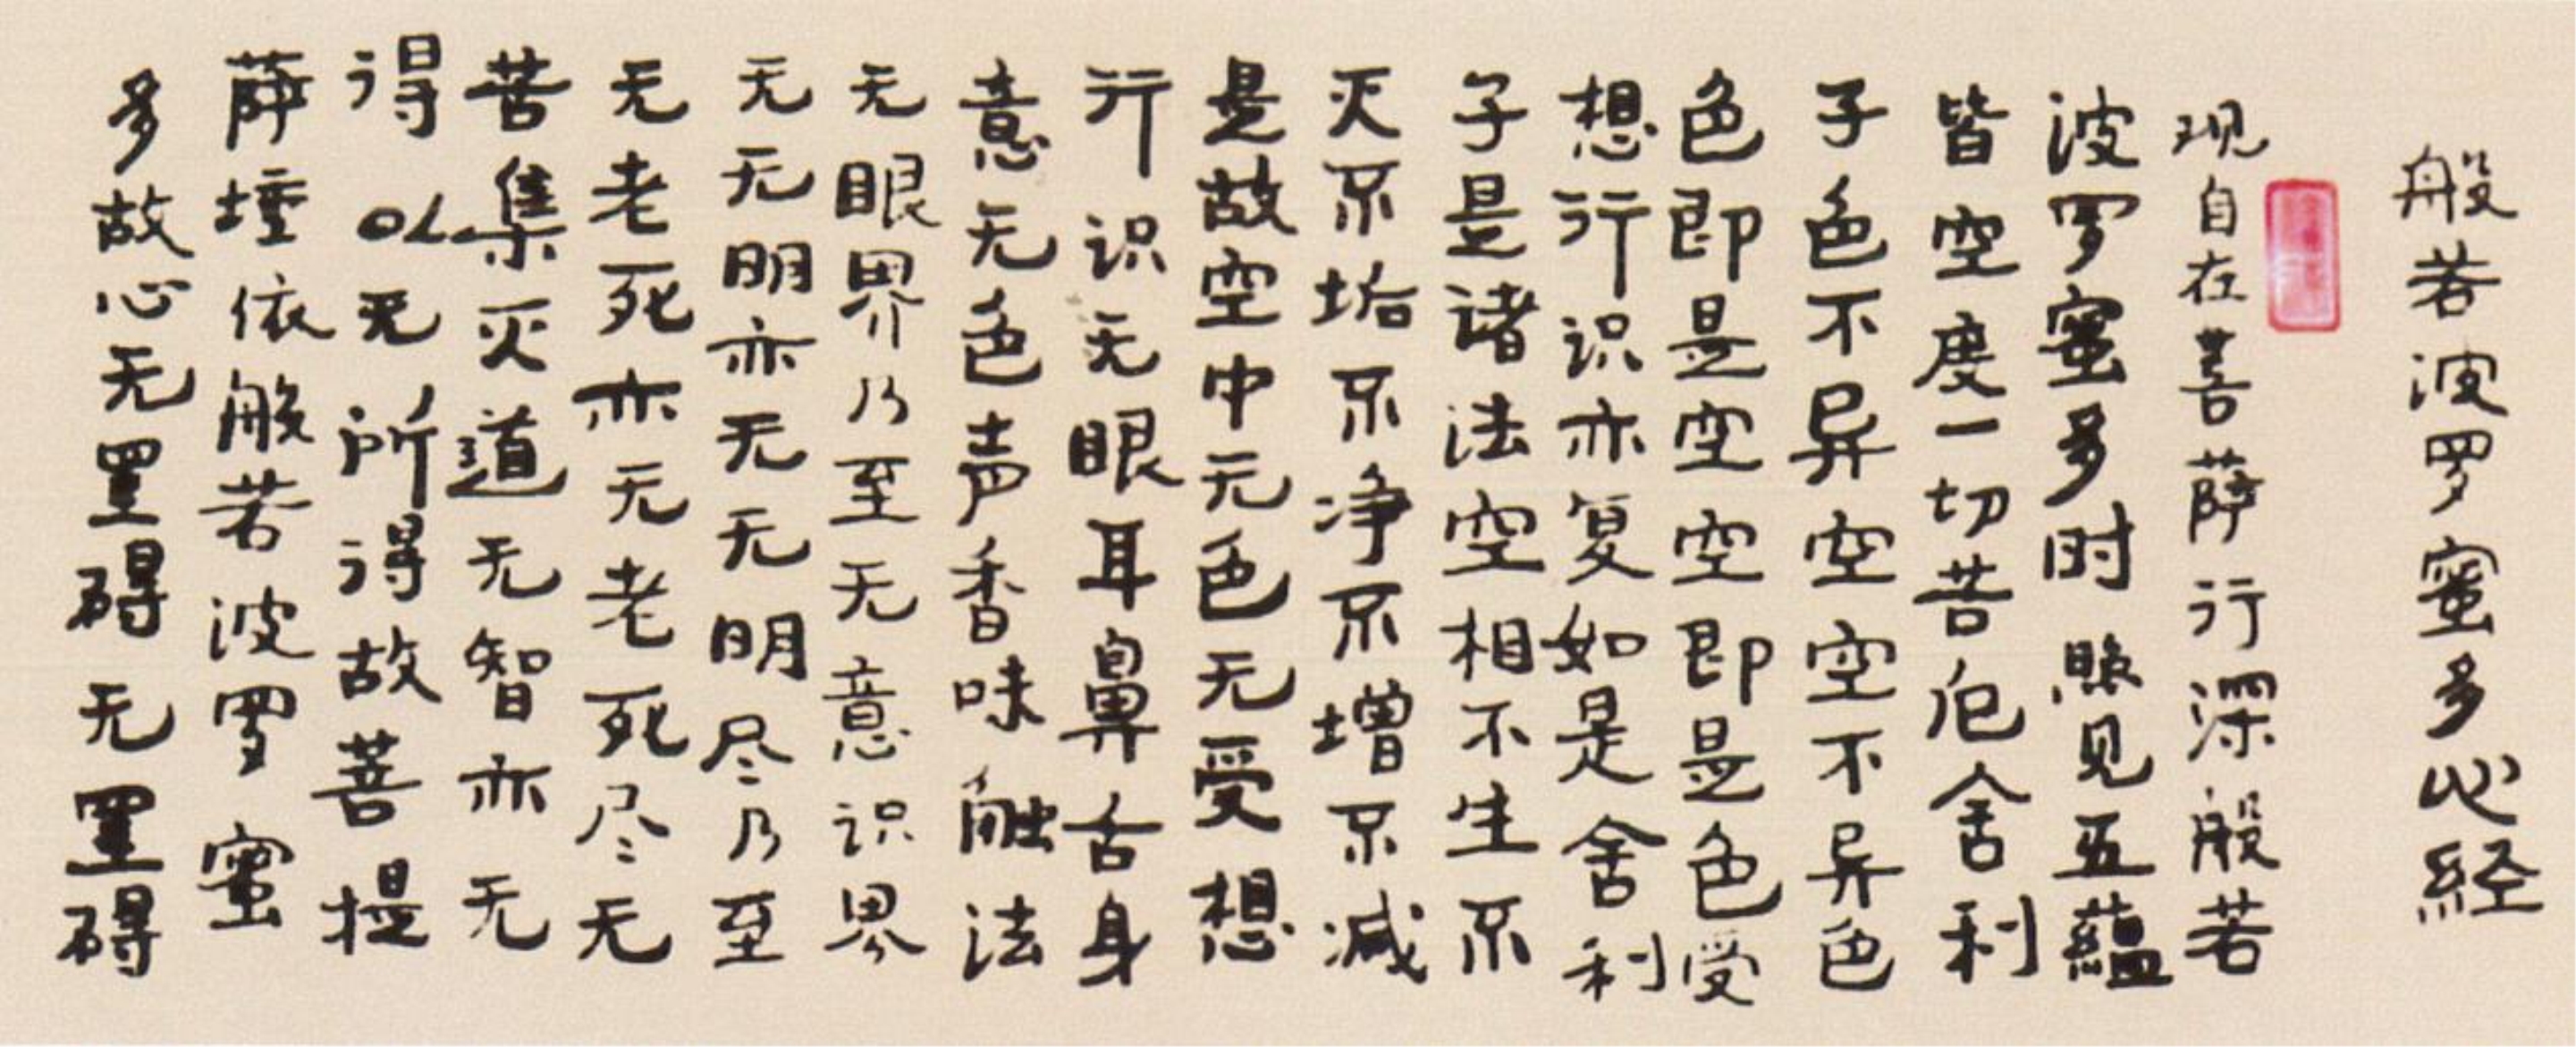 般若波罗蜜多心経
现自在菩萨行深般若
波罗蜜多时照见五蕴
皆空度一切苦厄舍利
子色不异空空不异色
色即是空空即是色受
想行识亦复如是舍利
子是诸法空相不生不
灭不垢不净不增不减
是故空中无色无受想
行识无眼耳鼻舌身
意无色声香味触法
无眼界乃至无意识界
无无明亦无无明尽乃至
无老死亦无老死尽无
苦集灭道无智亦无
得以无所得故菩提
萨埵依般若波罗蜜
多故心无罣碍无罣碍